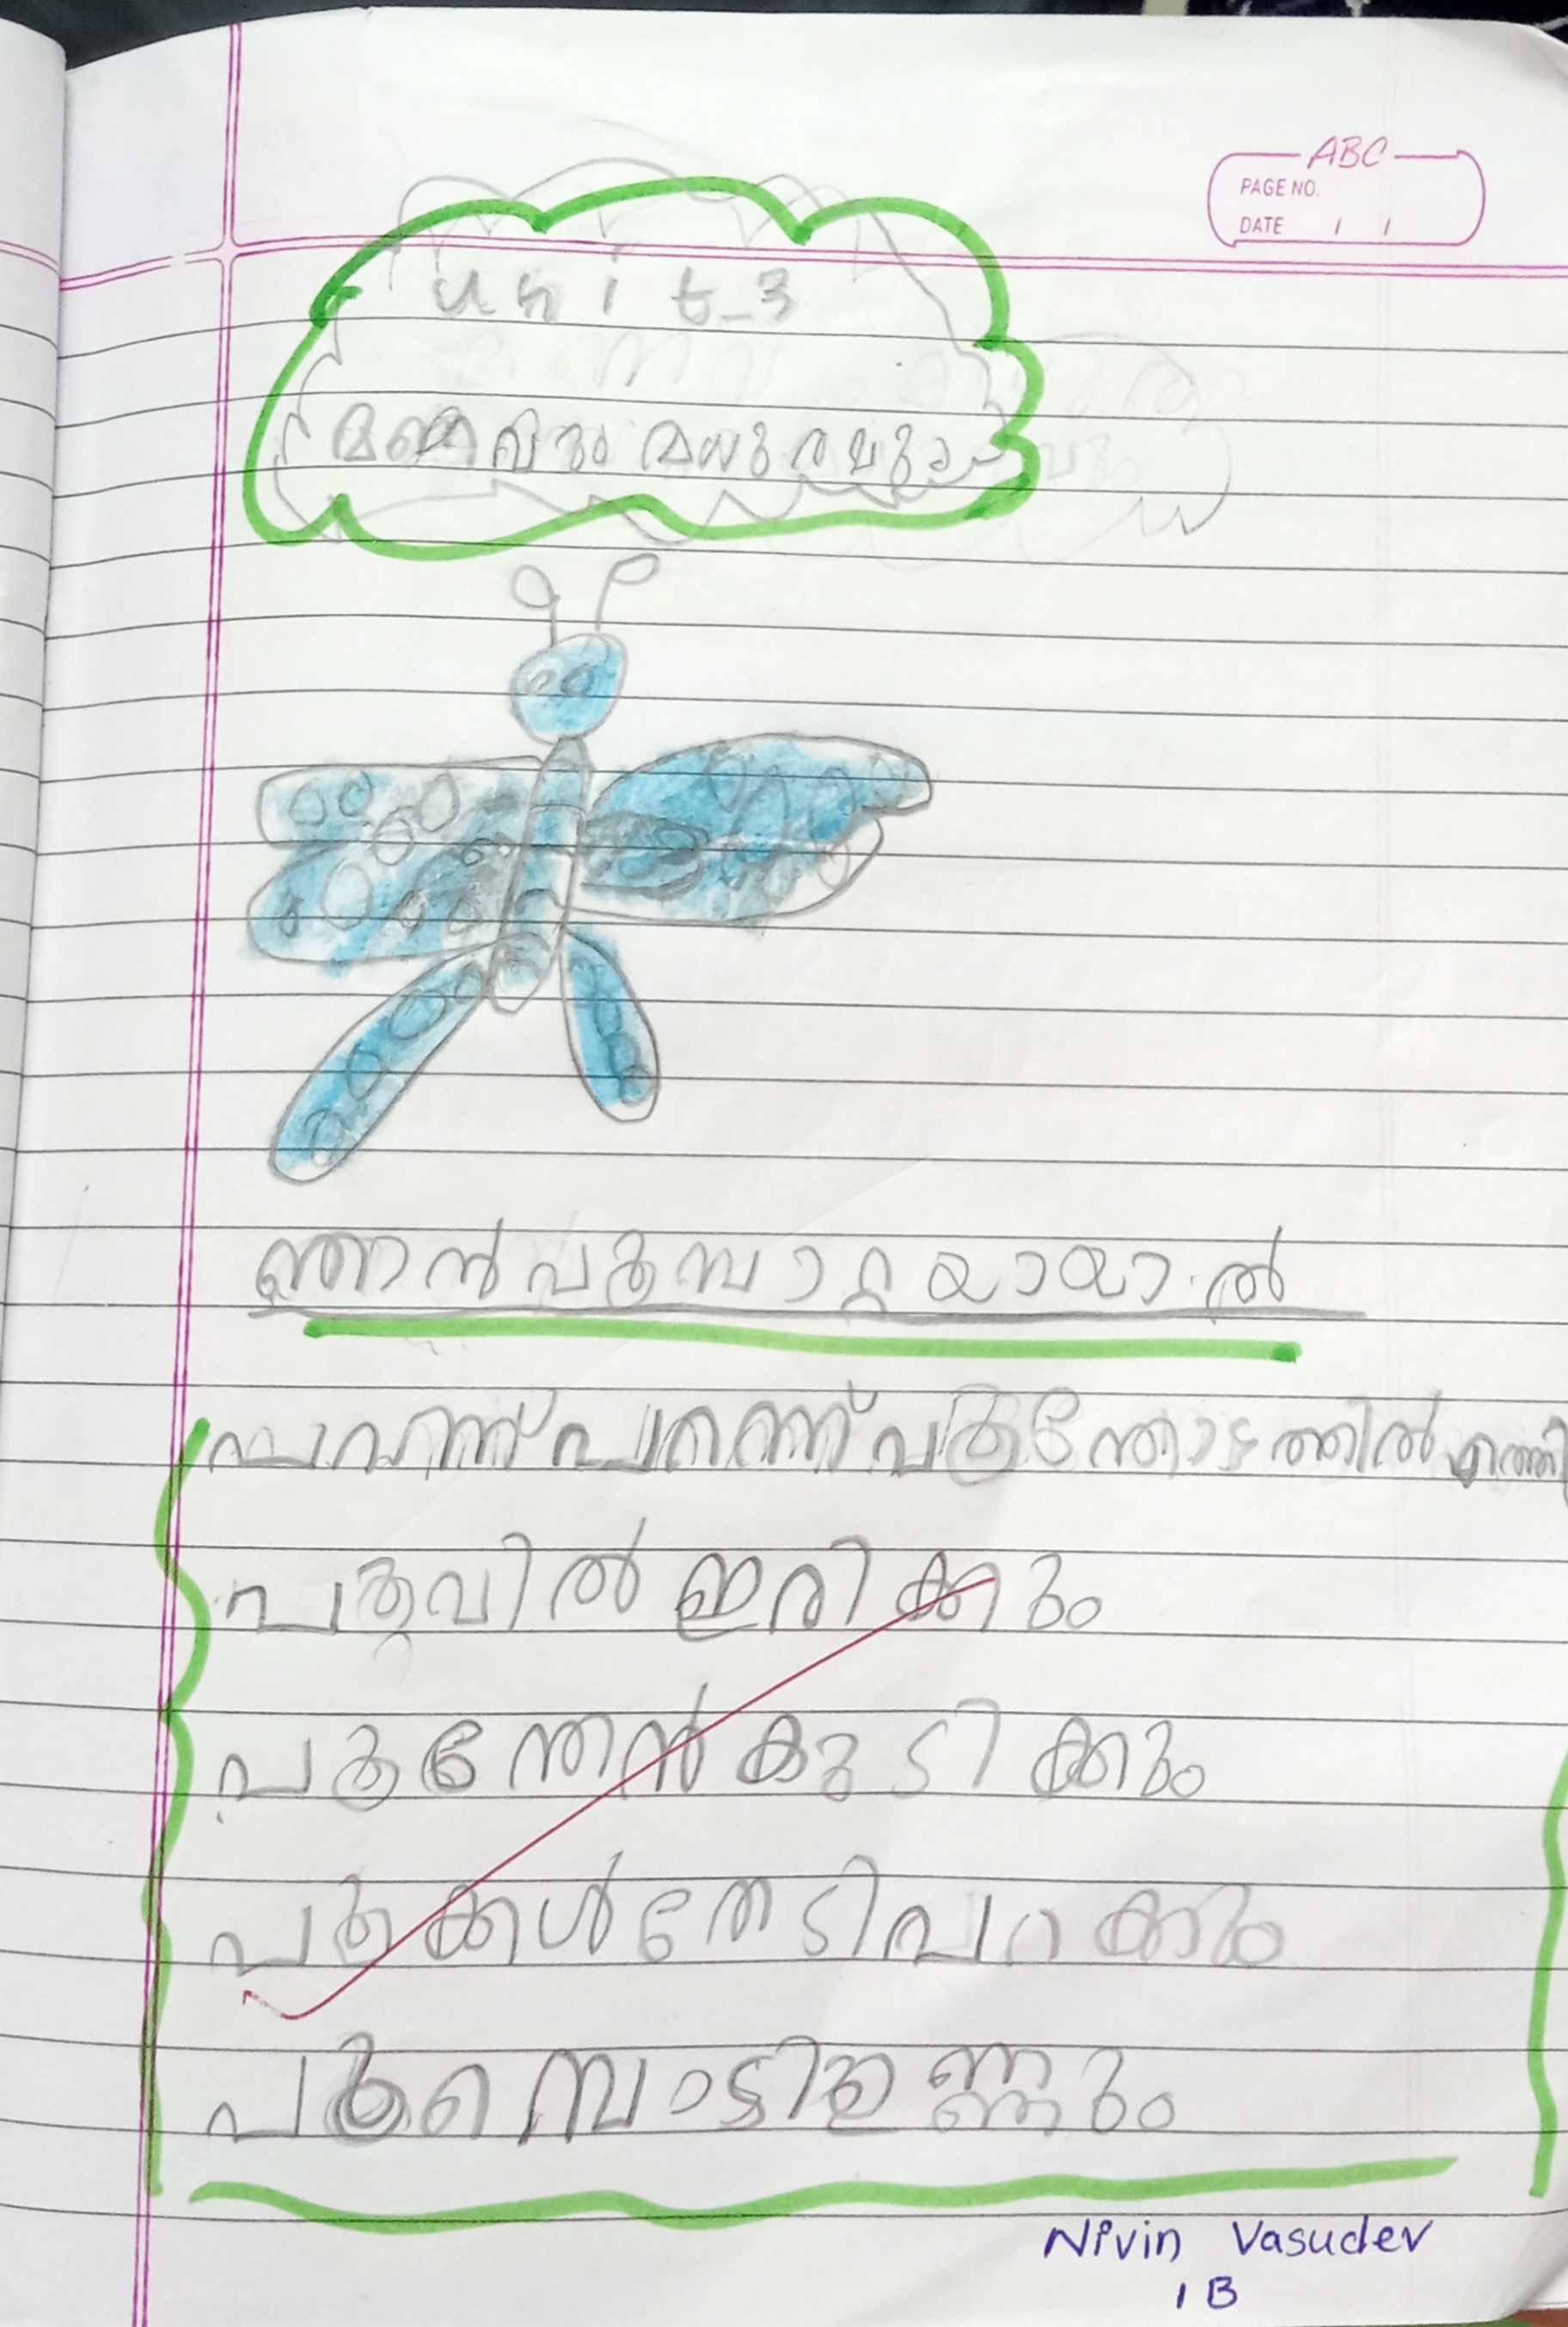 ABC
PAGE NO.
DATE / /
unit-3
മണവും മധുരവും
ഞാൻ പൂമ്പാറ്റയായാൽ
പറന്ന് പറന്ന് പൂന്തോട്ടത്തിൽ എത്തി
പൂവിൽ ഇരിക്കും
പൂന്തേൻ കുടിക്കും
പൂക്കൾ തേടി പറക്കും
പൂമ്പൊടി ഉണ്ണും
Nivin Vasudev
1 B